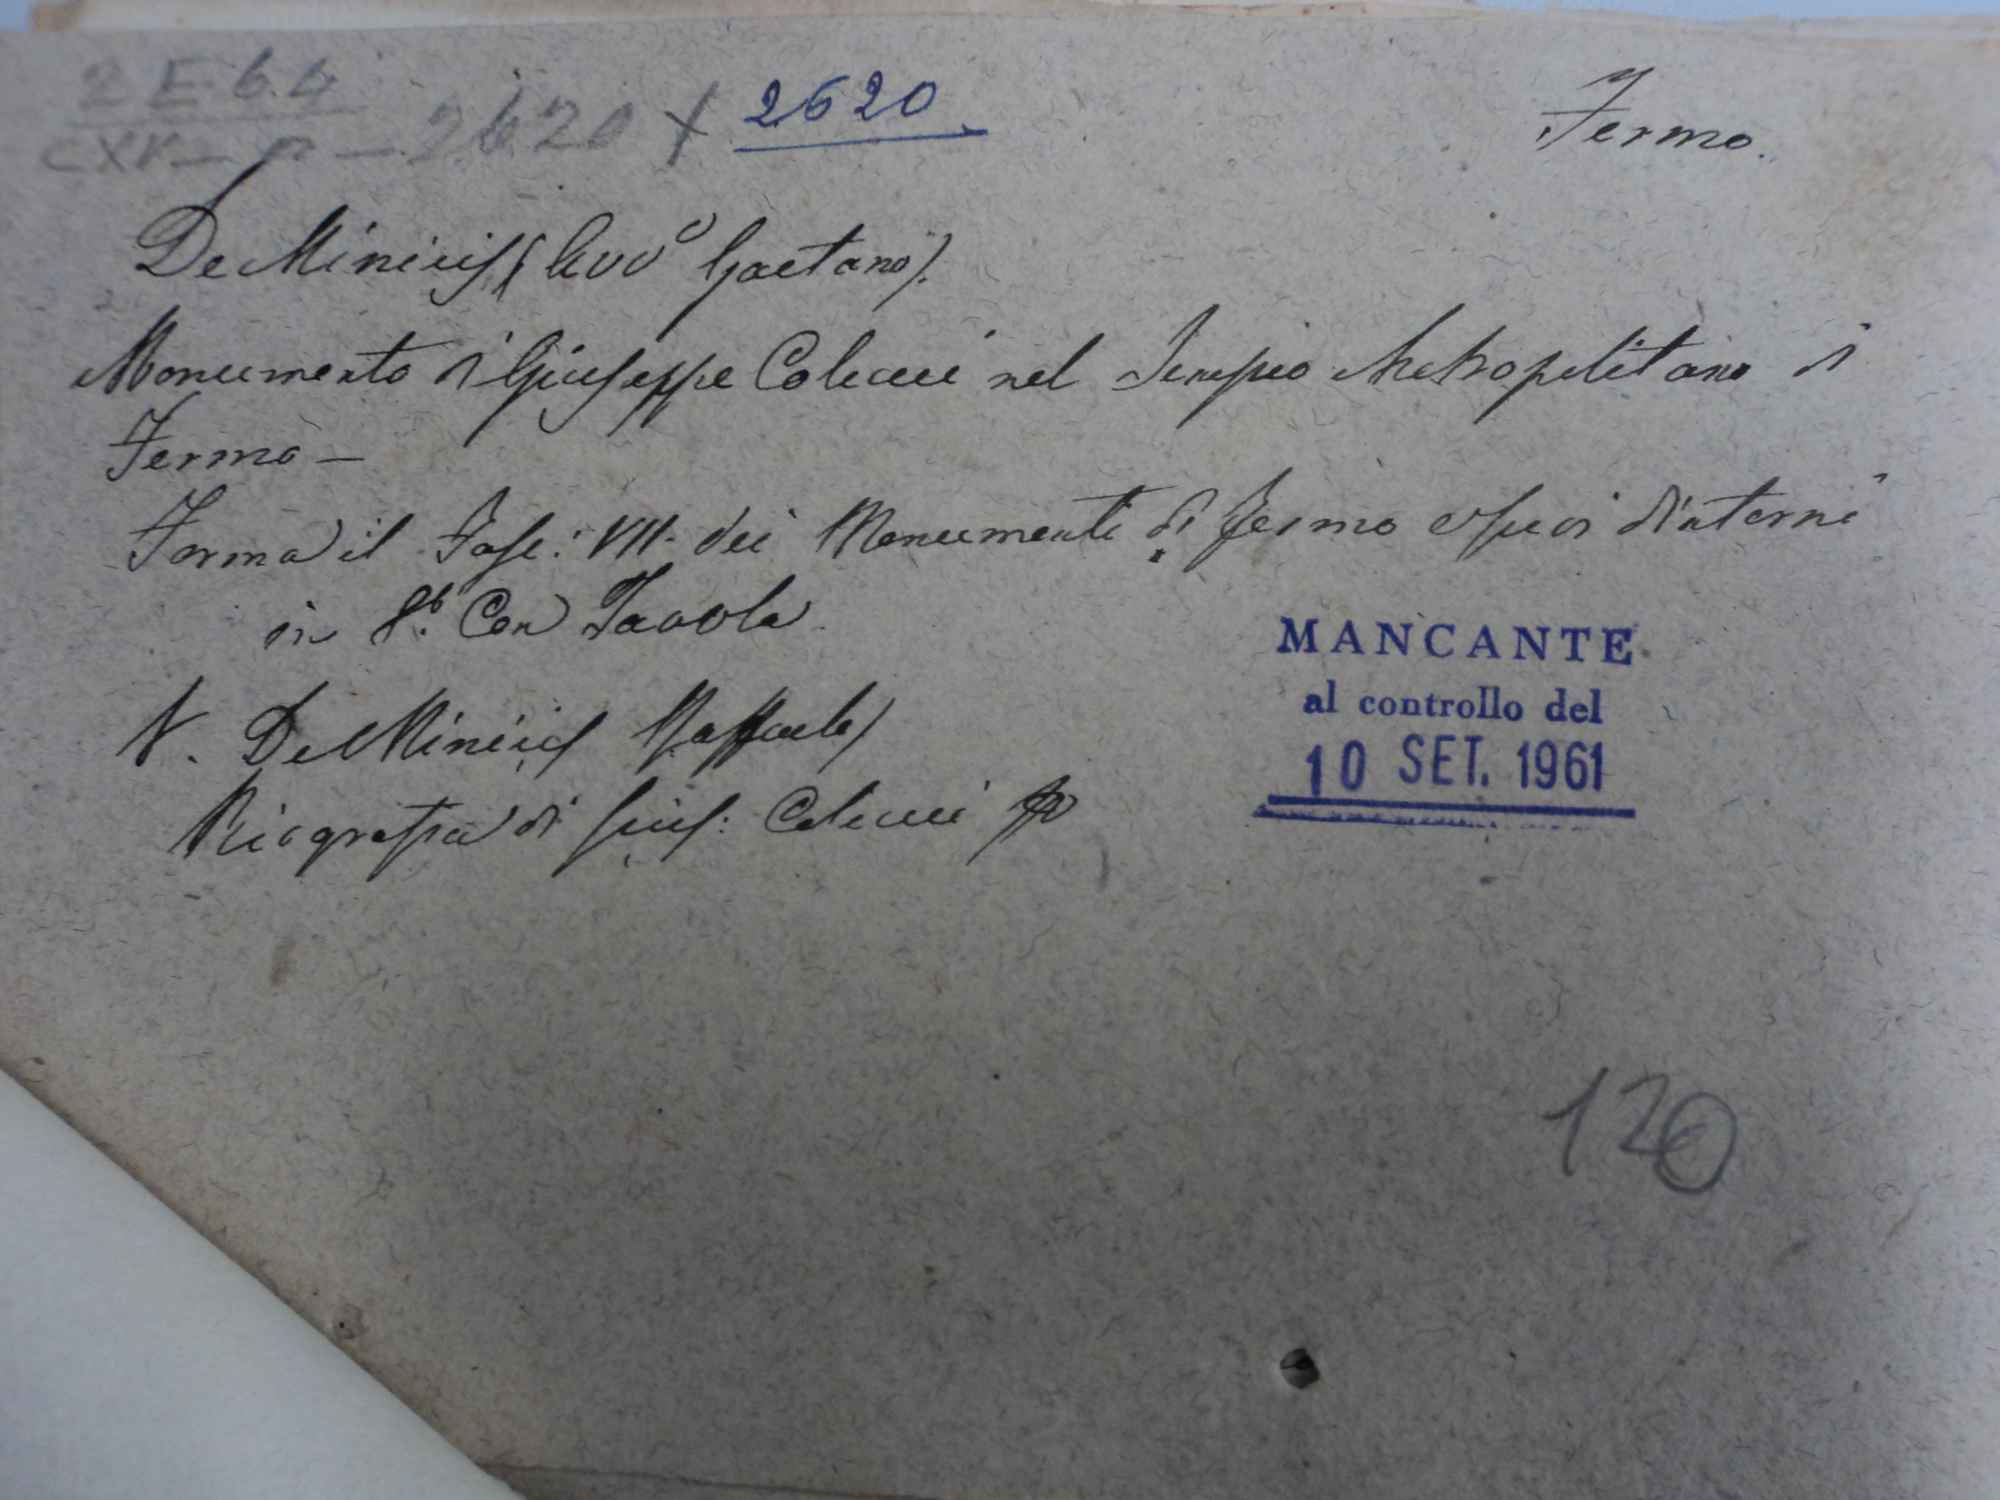 2 E 6.4
CXV - n - 2620 X 2620
Fermo.
De Minicis (Avvo Gaetano).
Monumento di Giuseppe Colucci nel Tempio Metropolitano di
Fermo -
Forma il Fasc: VII. dei Monumenti di Fermo e suoi dintorni
in 8.o Con Tavola
V. De Minicis Raffaele
Biografia di Gius: Colucci
MANCANTE
al controllo del
10 SET. 1961
120